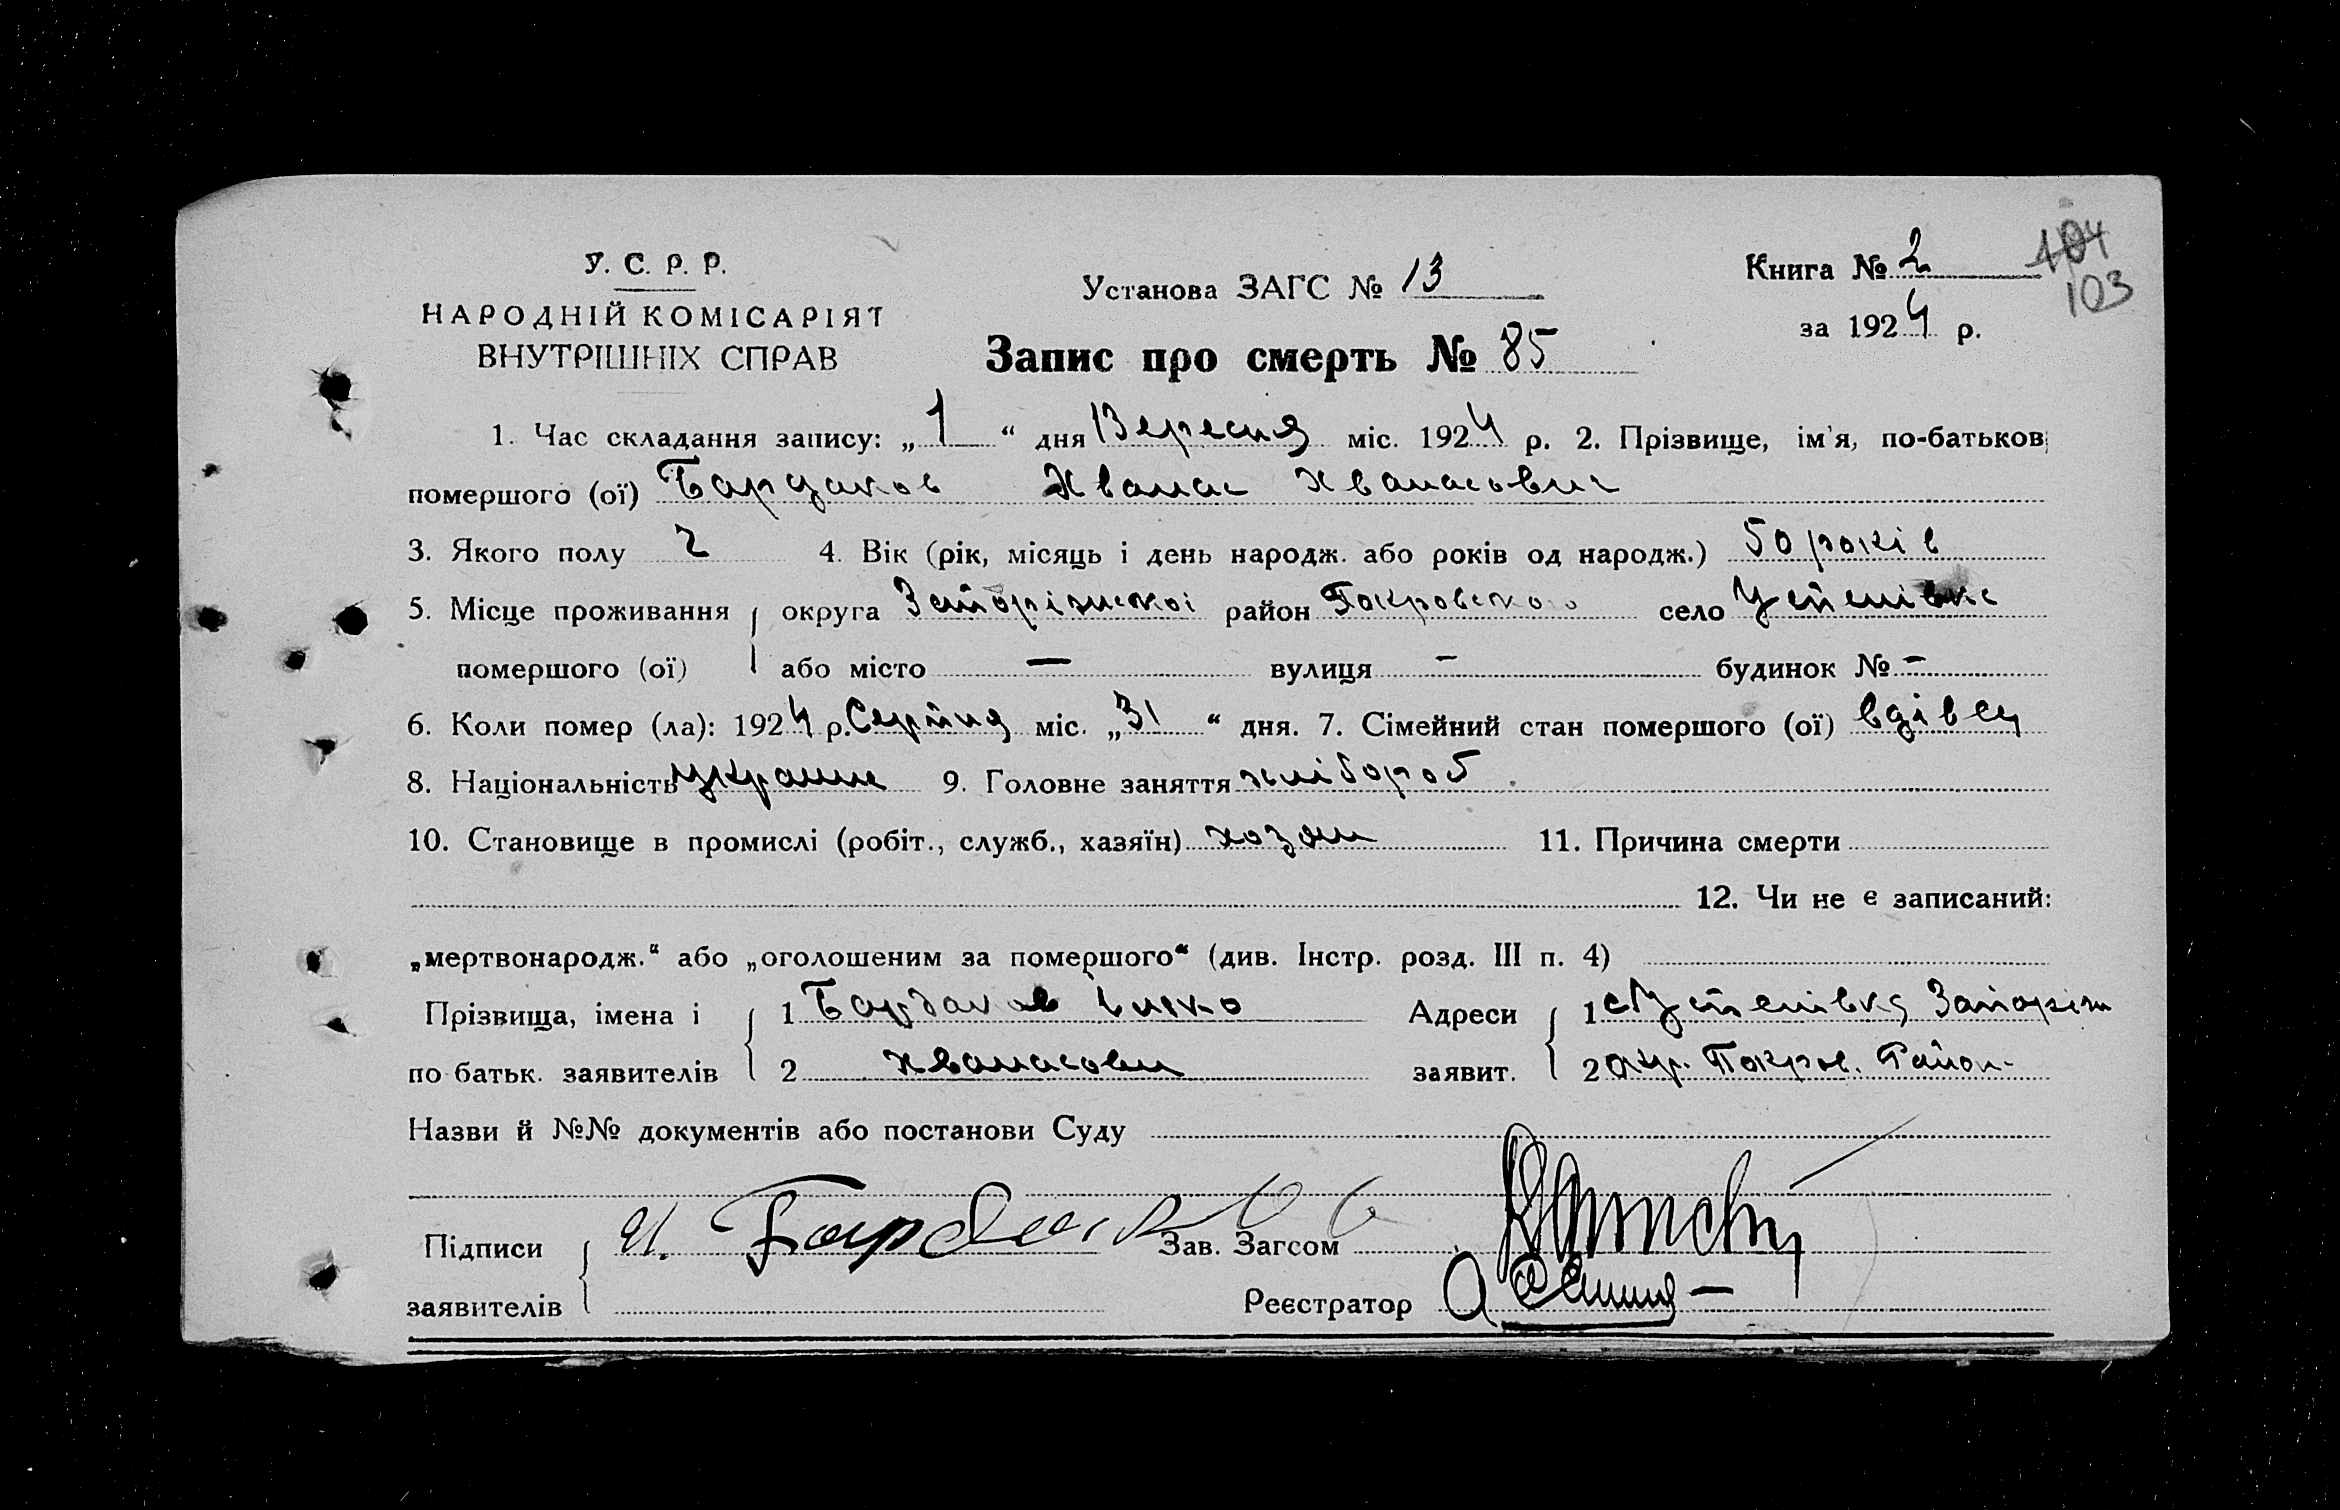 У. С. Р. Р.
НАРОДНІЙ КОМІСАРІЯТ
ВНУТРІШНІХ СПРАВ
Установа ЗАГС № 13
Запис про смерть № 85
Книга № 2
104
103
за 1924 р.
1. Час складання запису: „1“ дня Вересня міс. 1924 р. 2. Прізвище, ім'я, по-батькові
помершого (ої) Бардаков Хванас Хванасович
3. Якого полу ч 4. Вік (рік, місяць і день народж. або років од народж.) 50 років
5. Місце проживання округа Запорізської район Покровського село Успенівка
помершого (ої) або місто — вулиця – будинок № –
6. Коли помер (ла): 1924 р. Серпня міс. „31“ дня. 7. Сімейний стан помершого (ої) вдівец
8. Національність украине 9. Головне заняття хлібороб
10. Становище в промислі (робіт., служб., хазяїн) хозяин 11. Причина смерти
12. Чи не є записаний:
„мертвонародж.“ або „оголошеним за помершого“ (див. Інстр. розд. III п. 4)
Прізвища, імена і 1 Бардаков Адреси 1 с Успенівка Запоріж
по батьк. заявителів 2 Хванасови заявит. 2 окр. Покров. Район
Назви й №№ документів або постанови Суду
Підписи И. Бардаков Зав. Загсом
заявителів Реєстратор